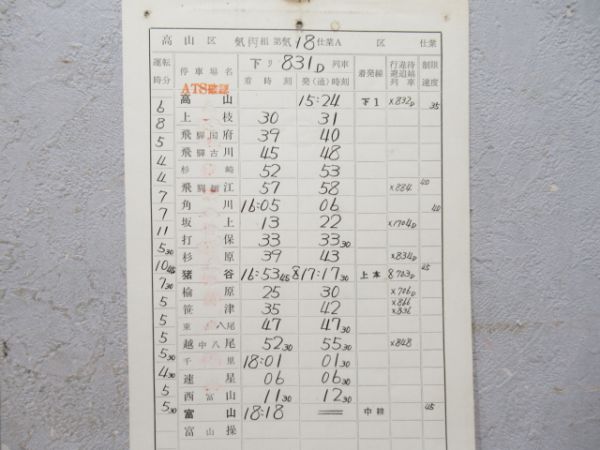 高山区 気 組 第気18仕業A 区 仕業
運転時分 停車場名 下り 831D 列車 着時刻 発(通)時刻 着発線 行違待避追越列車 制限速度
ATS確認
高山 15:24 下1 ×832D 35
6 上枝 30 31
8 飛騨国府 39 40
5 飛騨古川 45 48
4 杉崎 52 53
4 飛騨細江 57 58 ×884 40
7 角川 16:05 06 40
7 坂上 13 22 ×1704D
11 打保 33 33 30
5 30 杉原 39 43 ×834D
10 45 猪谷 16:53 45 8 17:17 30 上本 8703D 25
7 30 楡原 25 30 ×706D
5 笹津 35 42 ×866 ×836
5 東八尾 47 47 30
5 越中八尾 52 30 55 30 ×848
5 30 千里 18:01 01 30
4 30 速星 06 06 30
5 西富山 11 30 12 30
5 30 富山 18:18 中 45
富山操